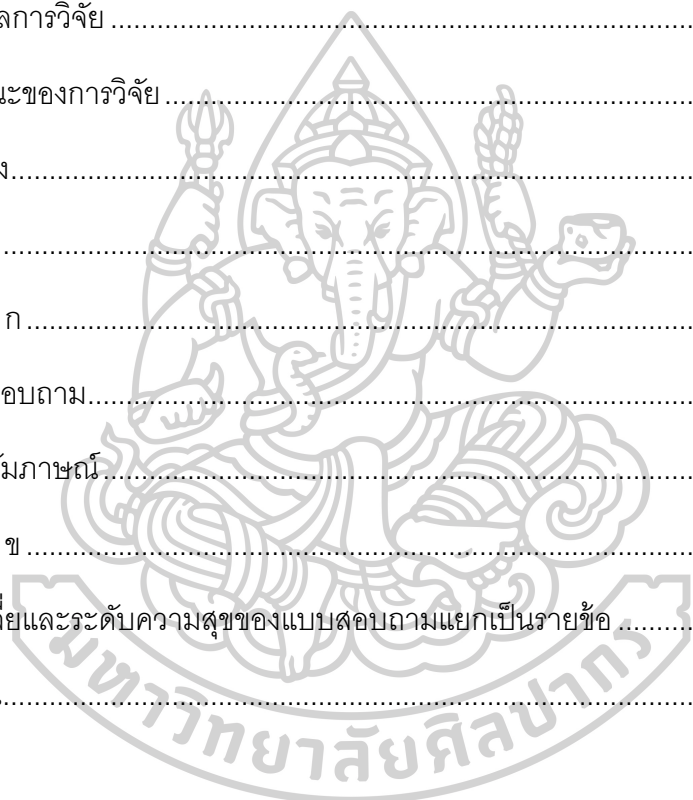 ลการวิจัย ........................................................................
นะของการวิจัย ........................................................................
ง........................................................................
........................................................................
ก ........................................................................
อบถาม........................................................................
ัมภาษณ์........................................................................
ข ........................................................................
ี่ยและระดับความสุขของแบบสอบถามแยกเป็นรายข้อ ..........
........................................................................
มหาวิทยาลัยศิลปากร